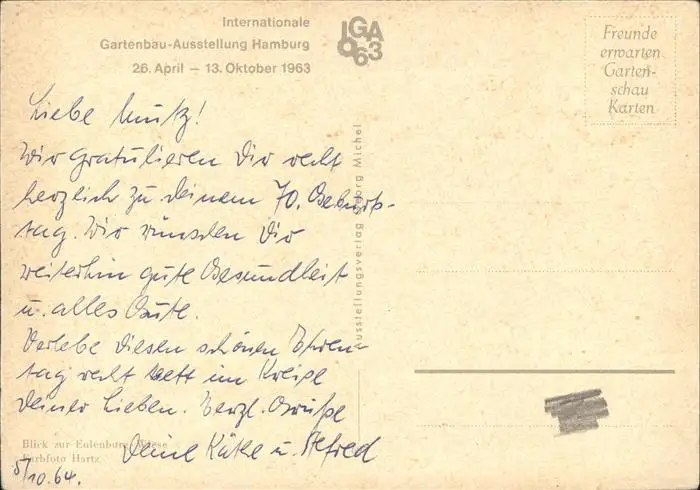 Internationale
Gartenbau-Ausstellung Hamburg
26. April – 13. Oktober 1963
IGA 63
Freunde
erwarten
Garten-
schau
Karten
Liebe Mutz!
Wir gratulieren Dir recht
herzlich zu deinem 70. Geburts-
tag. Wir wünschen Dir
weiterhin gute Gesundheit
u. alles Gute.
Verlebe diesen schönen Ehren-
tag recht nett im Kreise
deiner Lieben. Herzl. Grüße
Deine Käthe u. Alfred
5/10.64.
Ausstellungsverlag Georg Michel
Blick zur Eulenburg Wiese
Farbfoto Hartz